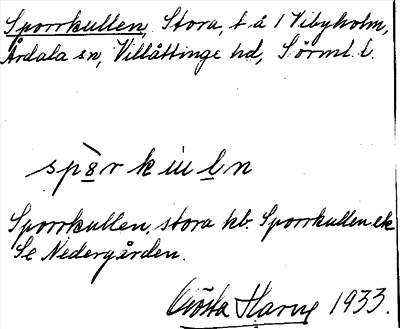 Sporrkullen, Stora, t å 1 Vibyholm,
Årdala sn, Villåttinge hd, Sörml. l.
spàr k u l n
Sporrkullen, stora kb. Sporrkullen ek
Se Nedergården.
Gösta Harve 1933.